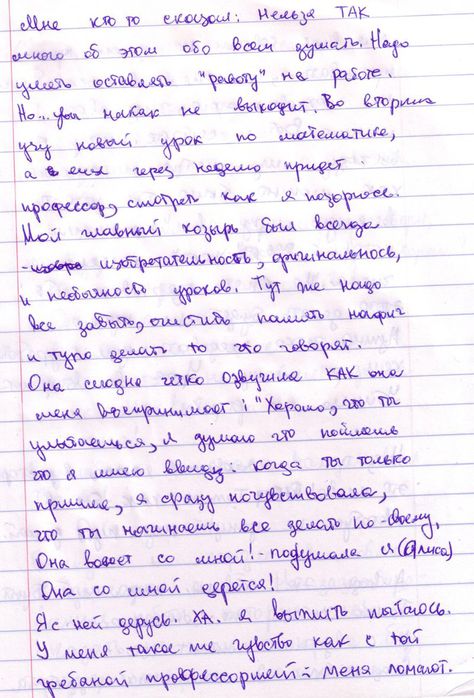 Мне кто то сказал: Нельзя ТАК
много об этом обо всем думать. Надо
уметь оставлять "работу" на работе.
Но... увы никак не выходит. Во вторник
учу новый урок по математике,
а в ещё через неделю придет
профессор, смотреть как я позорюсь.
Мой главный козырь был всегда
изобретательность, оригинальнось,
и необычность уроков. Тут же надо
все забыть, очистить память нафиг
и тупо делать то что говорят.
Она сегодня четко озвучила КАК она
меня воспринимает: "Хорошо, что ты
улыбаешься, я думаю что поймешь
что я имею ввиду: когда ты только
пришла, я сразу почувствовала,
что ты начинаешь все делать по-своему,
Она воюет со мной! - подумала я (Алиса)
Она со мной дерется!
Я с ней дерусь. ХА. Я выжить пытаюсь.
У меня такое же чувство как с той
гребаной профессоршей: меня ломают.